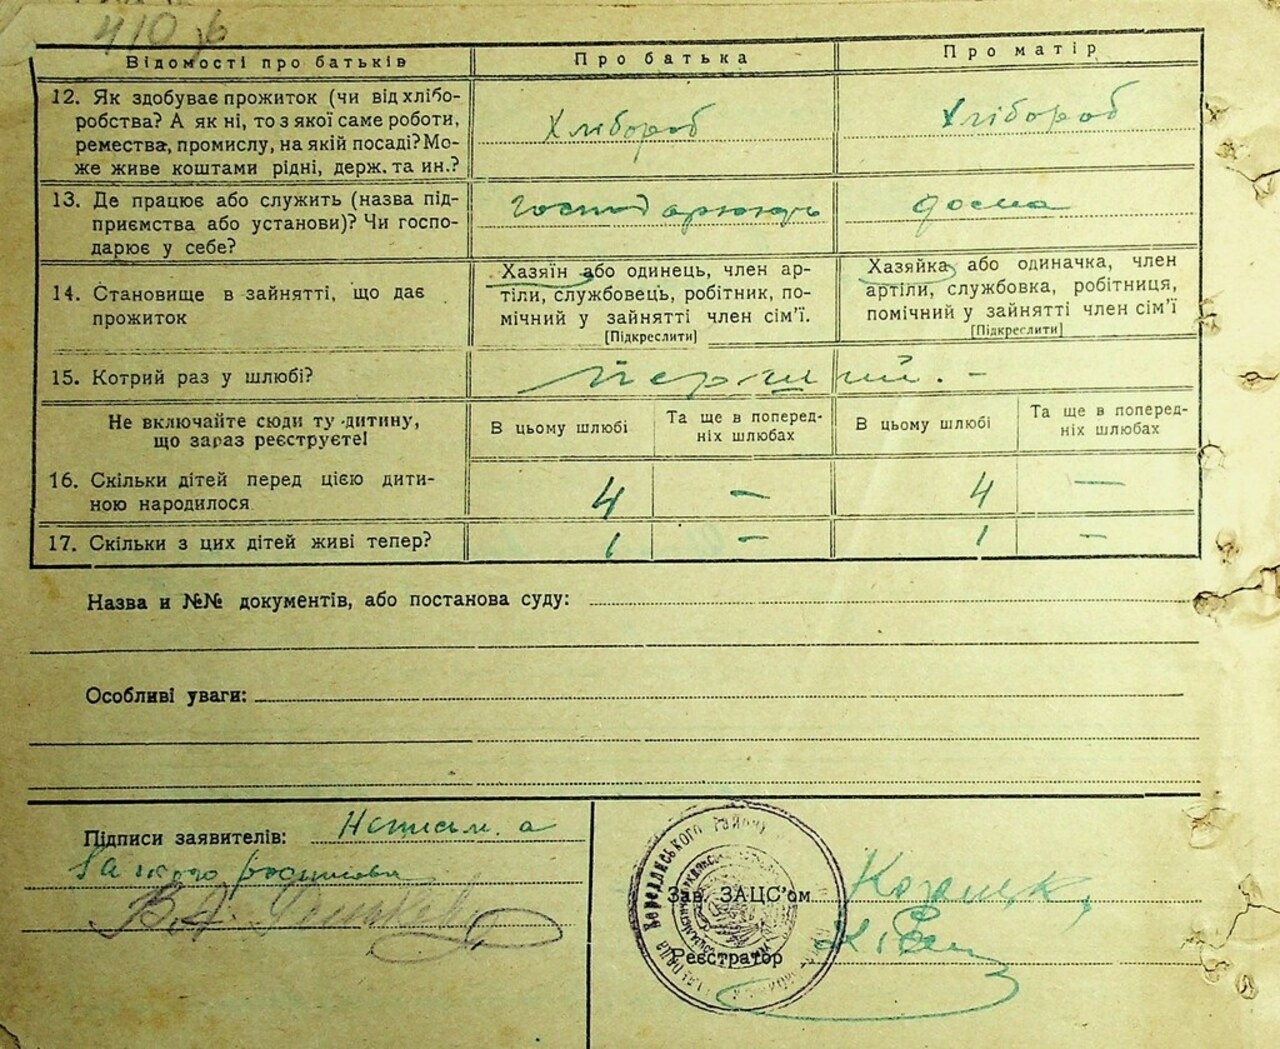 410 зв
Відомості про батьків
Про батька
Про матір
12. Як здобуває прожиток (чи від хлібо-
робства? А як ні, то з якої саме роботи,
ремества, промислу, на якій посаді? Мо-
же живе коштами рідні, держ. та ин.?
Хлібороб
Хлібороб
13. Де працює або служить (назва під-
приємства або установи)? Чи госпо-
дарює у себе?
Господарюють
дома
14. Становище в зайнятті, що дає
прожиток
Хазяїн або одинець, член ар-
тіли, службовець, робітник, по-
мічний у зайнятті член сім’ї.
[Підкреслити]
Хазяйка або одиначка, член
артіли, службовка, робітниця,
помічний у зайнятті член сім’ї
[Підкреслити]
15. Котрий раз у шлюбі?
Перший. –
Не включайте сюди ту дитину,
що зараз реєструєте!
В цьому шлюбі
Та ще в поперед-
ніх шлюбах
В цьому шлюбі
Та ще в поперед-
ніх шлюбах
16. Скільки дітей перед цією дити-
ною народилося
4
–
4
–
17. Скільки з цих дітей живі тепер?
1
–
1
–
Назва и №№ документів, або постанова суду:
Особливі уваги:
Підписи заявителів: Неписьм. а
За його росписався
В.А.
району
Зав. ЗАЦС’ом
Реєстратор